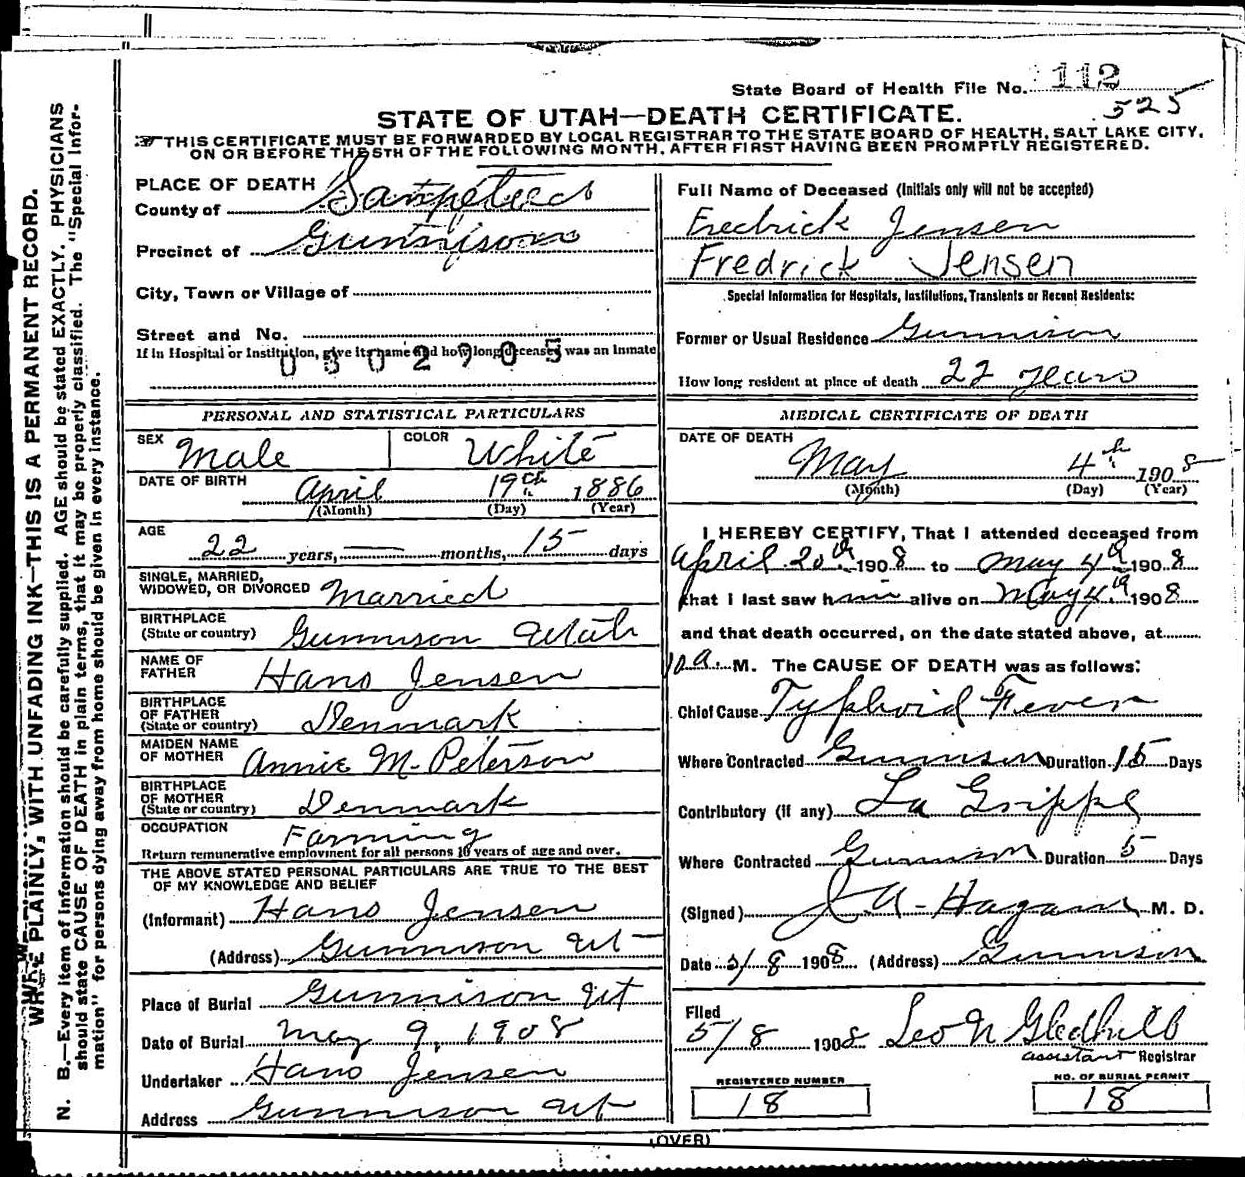 State Board of Health File No. 112
525
STATE OF UTAH—DEATH CERTIFICATE.
THIS CERTIFICATE MUST BE FORWARDED BY LOCAL REGISTRAR TO THE STATE BOARD OF HEALTH, SALT LAKE CITY,
ON OR BEFORE THE 5TH OF THE FOLLOWING MONTH, AFTER FIRST HAVING BEEN PROMPTLY REGISTERED.
WRITE PLAINLY, WITH UNFADING INK—THIS IS A PERMANENT RECORD.
N. B.—Every item of information should be carefully supplied. AGE should be stated EXACTLY. PHYSICIANS
should state CAUSE OF DEATH in plain terms, that it may be properly classified. The "Special Infor-
mation" for persons dying away from home should be given in every instance.
PLACE OF DEATH
County of Sanpete
Precinct of Gunnison
City, Town or Village of
Street and No.
If in Hospital or Institution, give its name and how long deceased was an Inmate
0302905
PERSONAL AND STATISTICAL PARTICULARS
SEX Male COLOR White
DATE OF BIRTH April 19th 1886
(Month) (Day) (Year)
AGE 22 years, — months, 15 days
SINGLE, MARRIED,
WIDOWED, OR DIVORCED Married
BIRTHPLACE
(State or country) Gunnison Utah
NAME OF
FATHER Hans Jensen
BIRTHPLACE
OF FATHER
(State or country) Denmark
MAIDEN NAME
OF MOTHER Annie M. Peterson
BIRTHPLACE
OF MOTHER
(State or country) Denmark
OCCUPATION Farming
Return remunerative employment for all persons 10 years of age and over.
THE ABOVE STATED PERSONAL PARTICULARS ARE TRUE TO THE BEST
OF MY KNOWLEDGE AND BELIEF
(Informant) Hans Jensen
(Address) Gunnison Ut
Place of Burial Gunnison Ut
Date of Burial May 9, 1908
Undertaker Hans Jensen
Address Gunnison Ut
Full Name of Deceased (Initials only will not be accepted)
Fredrick Jensen
Fredrick Jensen
Special Information for Hospitals, Institutions, Transients or Recent Residents:
Former or Usual Residence Gunnison
How long resident at place of death 22 years
MEDICAL CERTIFICATE OF DEATH
DATE OF DEATH
May 4th 1908
(Month) (Day) (Year)
I HEREBY CERTIFY, That I attended deceased from
April 20th 1908 to May 4th 1908
that I last saw him alive on May 4th 1908
and that death occurred, on the date stated above, at
10 a. M. The CAUSE OF DEATH was as follows:
Chief Cause Typhoid Fever
Where Contracted Gunnison Duration 15 Days
Contributory (if any) La Grippe
Where Contracted Gunnison Duration 5 Days
(Signed) J A Hagan M. D.
Date 5/8 1908 (Address) Gunnison
Filed
5/8 1908 Leo N Gledhill
assistant Registrar
REGISTERED NUMBER
18
NO. OF BURIAL PERMIT
18
(OVER)